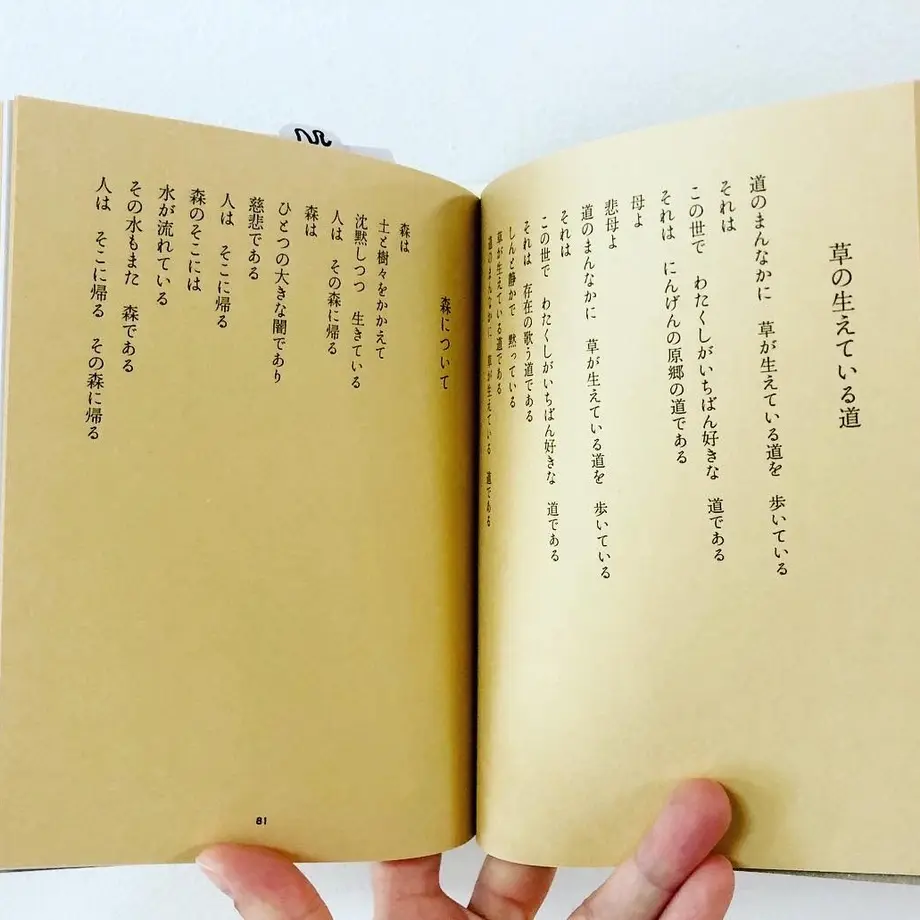 草の生えている道
道のまんなかに　草が生えている道を　歩いている
それは
この世で　わたくしがいちばん好きな　道である
それは　にんげんの原郷の道である
母よ
悲母よ
道のまんなかに　草が生えている道を　歩いている
それは
この世で　わたくしがいちばん好きな　道である
それは　存在の歌う道である
しんと静かで　黙っている
草が生えている道である
道のまんなかに　草が生えている　道である
森について
森は
土と樹々をかかえて
沈黙しつつ　生きている
人は　その森に帰る
森は
ひとつの大きな闇であり
慈悲である
人は　そこに帰る
森のそこには
水が流れている
その水もまた　森である
人は　そこに帰る　その森に帰る
81